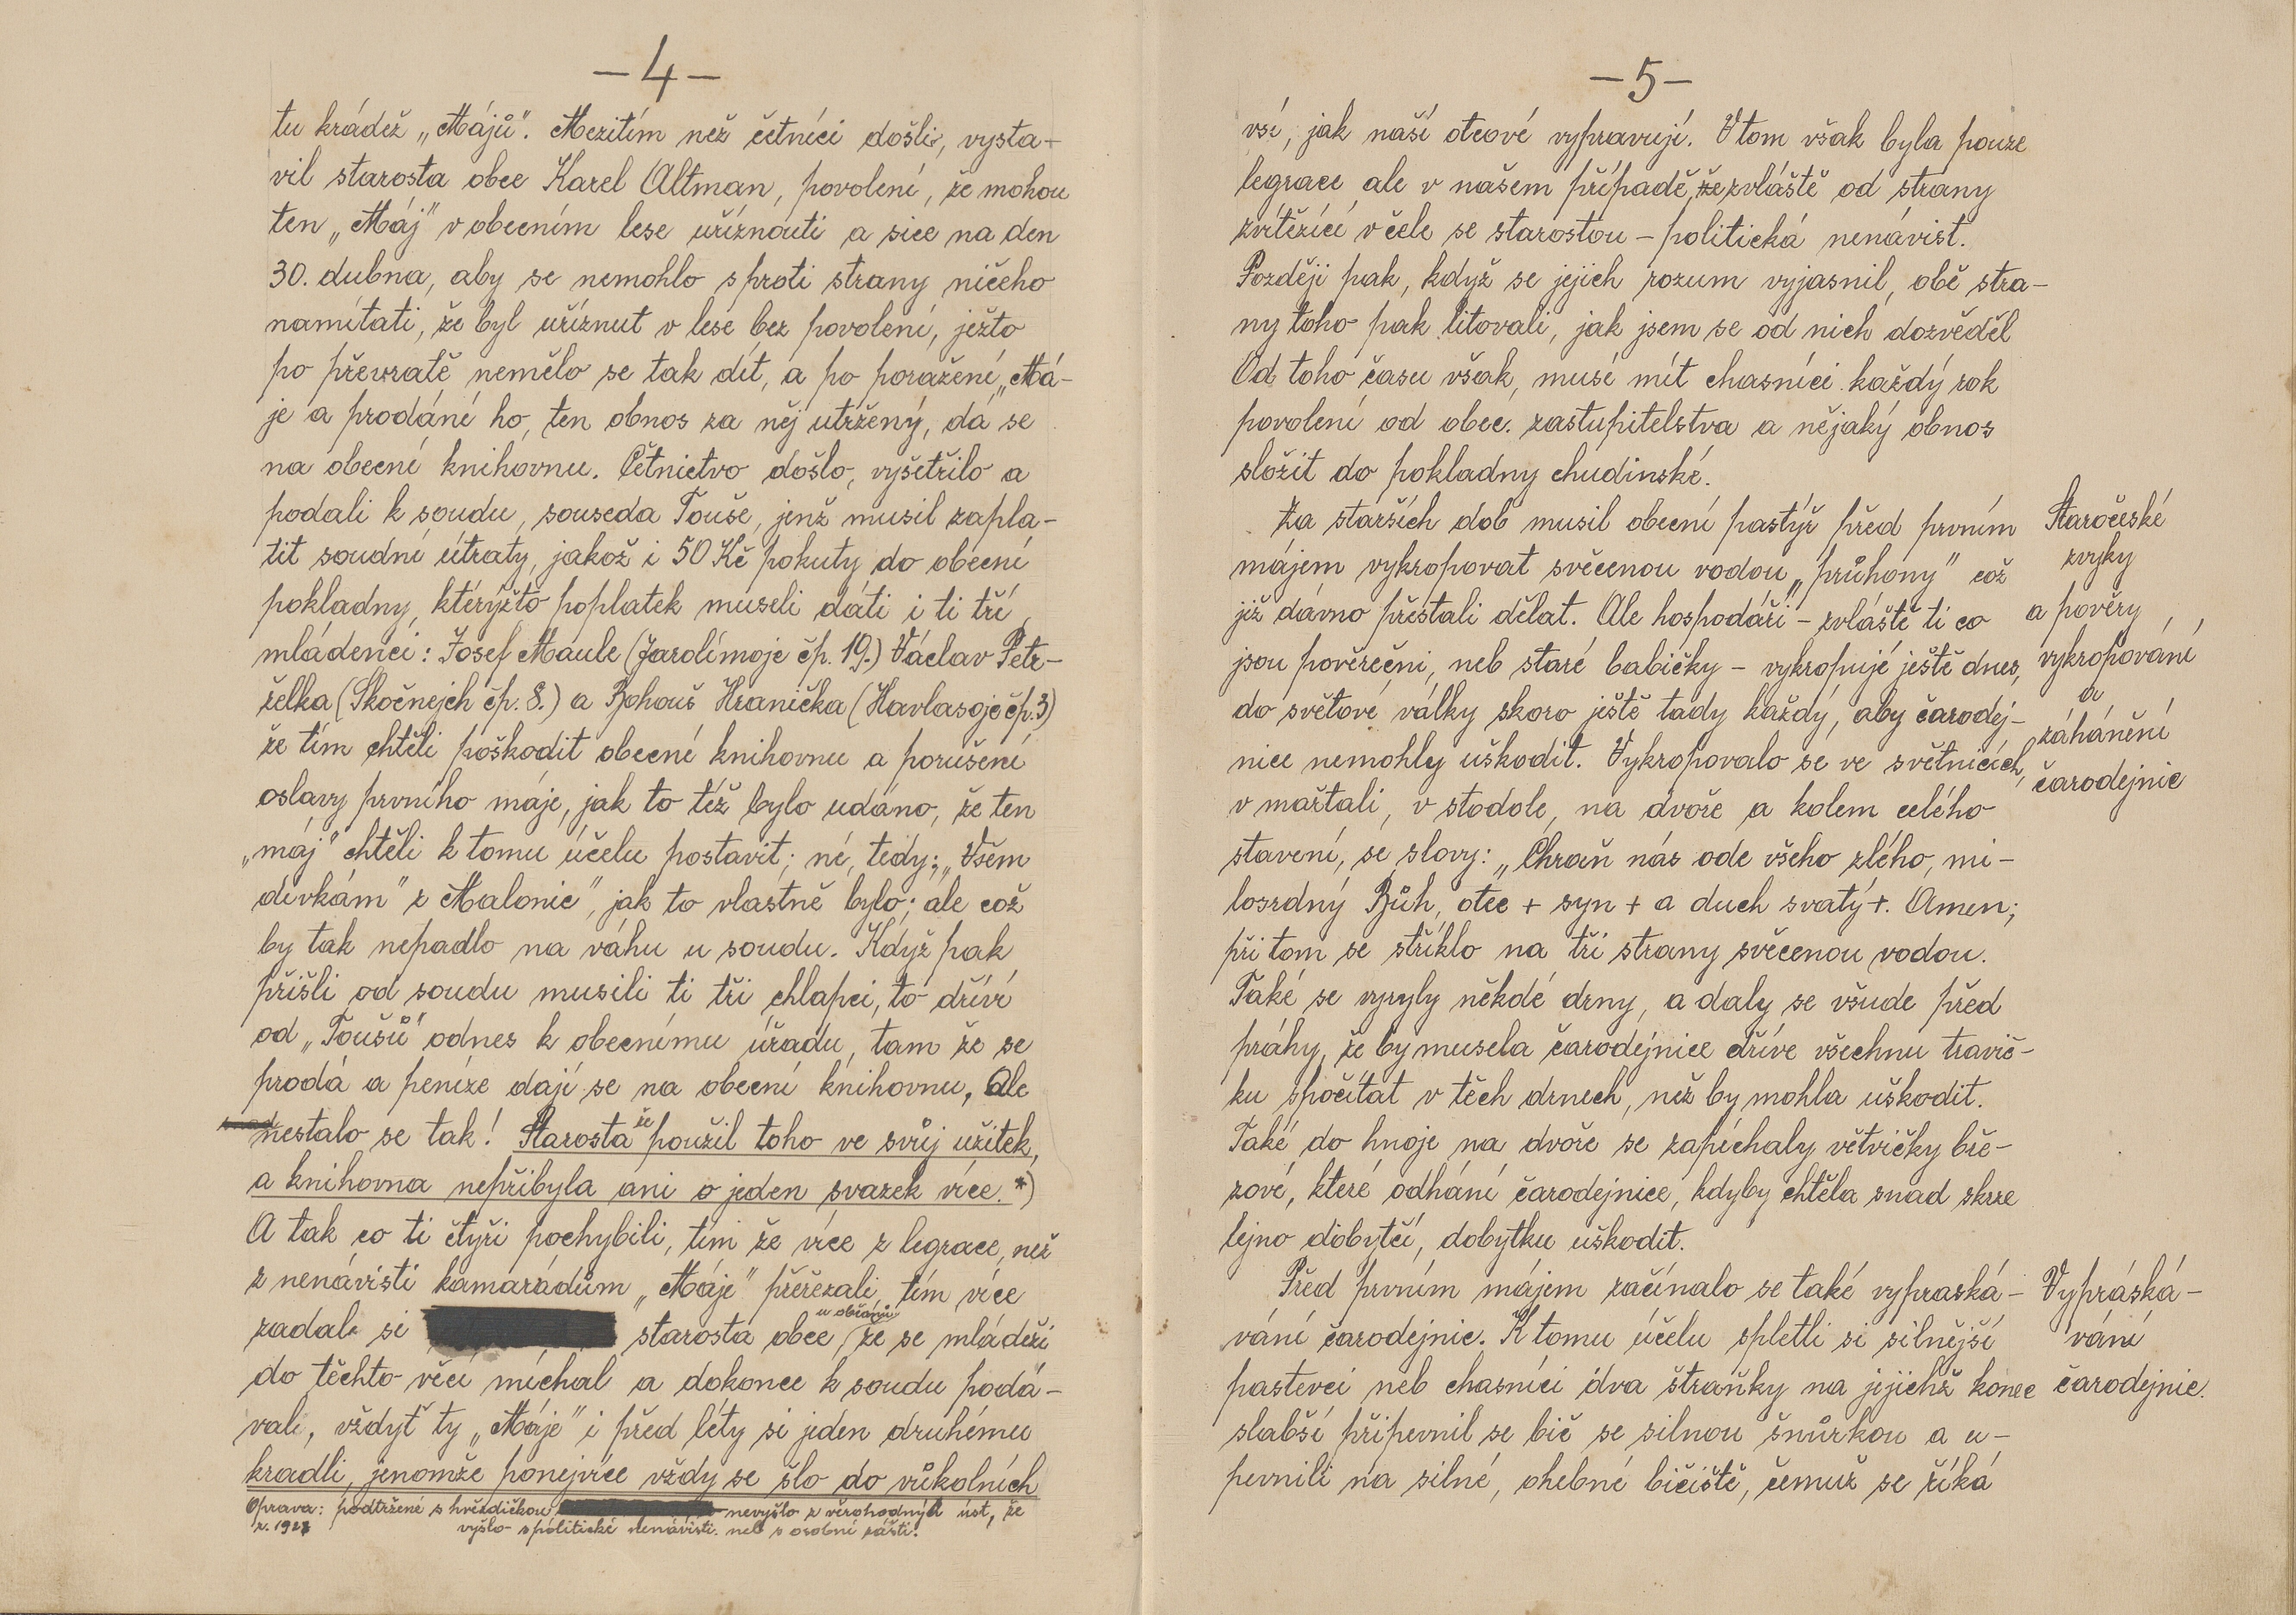 –4–
tu krádež „Májů". Mezitím než četníci došli, vysta-
vil starosta obce Karel Altman, povolení, že mohou
ten „Máj" v obecním lese uříznouti a sice na den
30. dubna, aby se nemohlo s proti strany ničeho
namítati, že byl uříznut v lese bez povolení, ježto
po převratě nemělo se tak dít, a po poražení „Má-
je a prodání ho, ten obnos za něj utržený, dá se
na obecní knihovnu. Četnictvo došlo, vyšetřilo a
podali k soudu, souseda Touše, jenž musil zapla-
tit soudní útraty, jakož i 50 Kč pokuty do obecní
pokladny, kterýžto poplatek museli dáti i ti tří
mládenci: Josef Maule (Jarolímoje čp. 19.) Václav Petr-
želka (Skočnejch čp. 8.) a Bohouš Hranička (Havlasoje čp. 3)
že tím chtěli poškodit obecné knihovnu a porušení
oslavy prvního máje, jak to též bylo udáno, že ten
„máj" chtěli k tomu účelu postavit; né, tedy: „Všem
dívkám" z Malonic", jak to vlastně bylo; ale což
by tak nepadlo na váhu u soudu. Když pak
přišli od soudu musili ti tři chlapci, to dříví
od „Toušů" odnes k obecnímu úřadu, tam že se
prodá a peníze dají se na obecní knihovnu, Ale
nestalo se tak! Starosta že použil toho ve svůj užitek,
a knihovna nepřibyla ani o jeden svazek více. *)
A tak co ti čtyři pochybili, tím že více z legrace, než
z nenávisti kamarádům „Máje" přeřezali, tím více
zadal si starosta obce u občanů, že se mládeži
do těchto věcí míchal a dokonce k soudu podá-
vali, vždyť ty „Máje" i před léty si jeden druhému
kradli, jenomže ponejvíce vždy se šlo do vůkolních
Oprava: podtržené s hvězdičkou nevyšlo z věrohodných úst, že
r. 1927 vyšlo s politické nenávisti. neb s osobní zášti.
–5–
vsí, jak naší otcové vypravují. V tom však byla pouze
legrace, ale v našem případě, že zvláště od strany
zvítězící v čele se starostou – politická nenávist.
Později pak, když se jejich rozum vyjasnil, obě stra-
ny toho pak litovali, jak jsem se od nich dozvěděl
Od toho času však, musí mít chasníci každý rok
povolení od obec. zastupitelstva a nějaký obnos
složit do pokladny chudinské.
Za starších dob musil obecní pastýř před prvním
májem vykropovat svěcenou vodou „průhony" což
již dávno přestali dělat. Ale hospodáři – zvláště ti co
jsou pověreční, neb staré babičky – vykropují ještě dnes,
do světové války skoro ještě tady každý, aby čarodej-
nice nemohly uškodit. Vykropovalo se ve světnicích,
v maštali, v stodole, na dvoře a kolem celého
stavení, se slovy: „Chraň nás ode všeho zlého, mi-
losrdný Bůh, otec + syn + a duch svatý +. Amen;
při tom se stříklo na tři strany svěcenou vodou.
Také se vyryly někdé drny, a daly se všude před
práhy, že by musela čarodejnice dříve všechnu travič-
ku spočítat v těch drnech, než by mohla uškodit.
Také do hnoje na dvoře se zapíchaly větvičky bře-
zové, které odhání čarodejnice, kdyby chtěla snad skrze
lejno dobytčí, dobytku uškodit.
Před prvním májem začínalo se také vypraská-
vání čarodejnic. K tomu účelu spletli si silnější
pastevci neb chasníci dva straňky na jejichž konec
slabší připevnil se bič se silnou šnůrkou a u-
pevnili na silné, ohebné bičiště, čemuž se říká
Staročeské
zvyky
a pověry,
vykropování
a
záhánění
čarodejnic
Vypráská-
vání
čarodejnic.